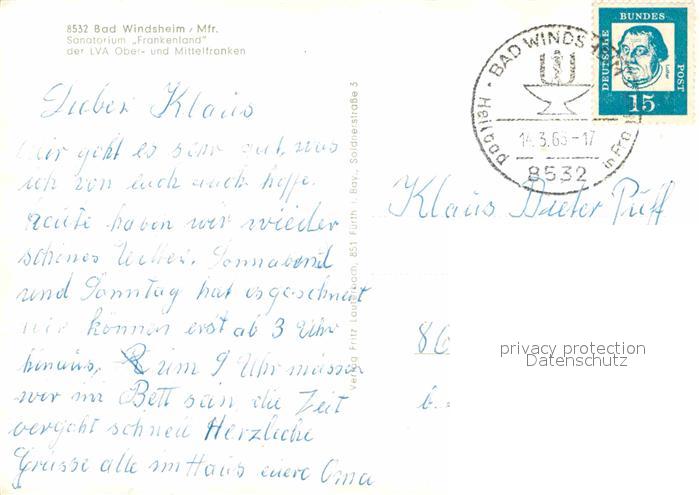 8532 Bad Windsheim / Mfr.
Sanatorium „Frankenland"
der LVA Ober- und Mittelfranken
Lieber Klaus
Mir geht es sehr gut, was
ich von euch auch hoffe.
Heute haben wir wieder
schönes Wetter. Sonnabend
und Sonntag hat es geschneit
wir können erst ab 3 Uhr
hinaus, um 9 Uhr müssen
wir im Bett sein, die Zeit
vergeht schnell Herzliche
Grüsse alle im Haus eure Oma
Verlag Fritz Lauterbach, 851 Fürth i. Bay., Soldnerstraße 3
BAD WINDSHEIM
Heilbad
in Fra
14.3.63-17
8532
DEUTSCHE
BUNDES
POST
Luther
15
Klaus Dieter Puff
86
b
privacy protection
Datenschutz